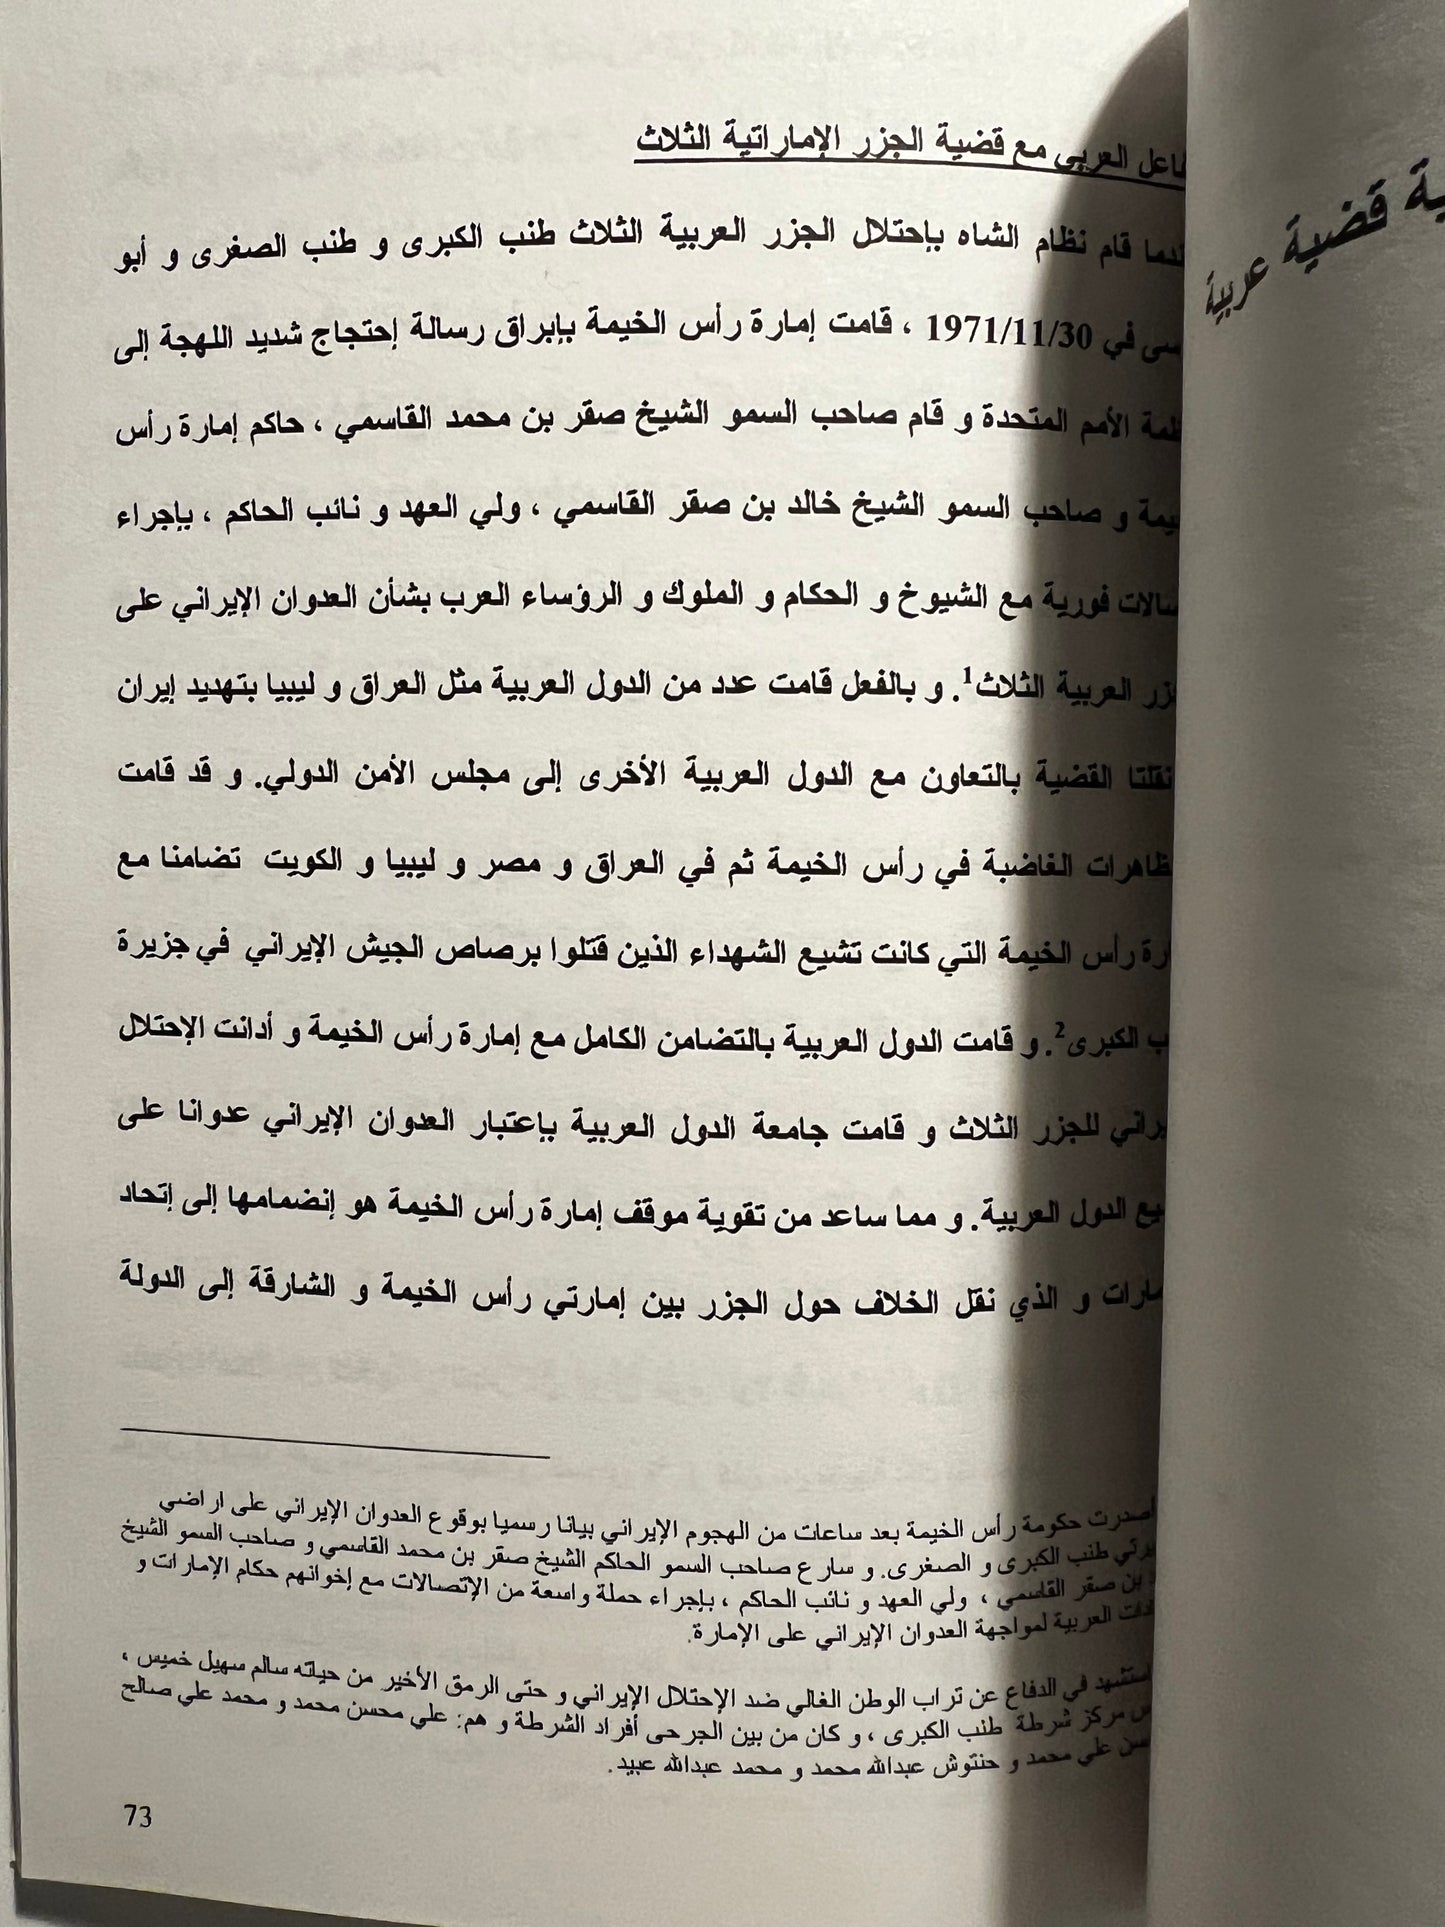 العربي مع قضية الجزر الإماراتية الثلاث
قام نظام الشاه بإحتلال الجزر العربية الثلاث طنب الكبرى و طنب الصغرى و أبو
في 1971/11/30 ، قامت إمارة رأس الخيمة بإبراق رسالة إحتجاج شديد اللهجة إلى
الأمم المتحدة و قام صاحب السمو الشيخ صقر بن محمد القاسمي ، حاكم إمارة رأس
و صاحب السمو الشيخ خالد بن صقر القاسمي ، ولي العهد و نائب الحاكم ، بإجراء
فورية مع الشيوخ و الحكام و الملوك و الرؤساء العرب بشأن العدوان الإيراني على
العربية الثلاث1. و بالفعل قامت عدد من الدول العربية مثل العراق و ليبيا بتهديد إيران
نقلتا القضية بالتعاون مع الدول العربية الأخرى إلى مجلس الأمن الدولي. و قد قامت
الغاضبة في رأس الخيمة ثم في العراق و مصر و ليبيا و الكويت تضامنا مع
رأس الخيمة التي كانت تشيع الشهداء الذين قتلوا برصاص الجيش الإيراني في جزيرة
الكبرى2. و قامت الدول العربية بالتضامن الكامل مع إمارة رأس الخيمة و أدانت الإحتلال
للجزر الثلاث و قامت جامعة الدول العربية بإعتبار العدوان الإيراني عدوانا على
الدول العربية. و مما ساعد من تقوية موقف إمارة رأس الخيمة هو إنضمامها إلى إتحاد
و الذي نقل الخلاف حول الجزر بين إمارتي رأس الخيمة و الشارقة إلى الدولة
حكومة رأس الخيمة بعد ساعات من الهجوم الإيراني بيانا رسميا بوقوع العدوان الإيراني على اراضي
طنب الكبرى و الصغرى. و سارع صاحب السمو الحاكم الشيخ صقر بن محمد القاسمي و صاحب السمو الشيخ
بن صقر القاسمي ، ولي العهد و نائب الحاكم ، بإجراء حملة واسعة من الإتصالات مع إخوانهم حكام الإمارات و
العربية لمواجهة العدوان الإيراني على الإمارة.
في الدفاع عن تراب الوطن الغالي ضد الإحتلال الإيراني و حتى الرمق الأخير من حياته سالم سهيل خميس ،
مركز شرطة طنب الكبرى ، و كان من بين الجرحى أفراد الشرطة و هم: علي محسن محمد و محمد علي صالح
علي محمد و حنتوش عبدالله محمد و محمد عبدالله عبيد.
73
قضية عربية